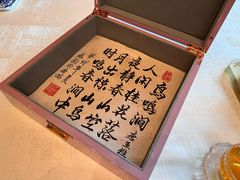 鳥鳴澗 唐 王維
人閑桂花落
夜靜春山空
月出驚山鳥
時鳴春澗中